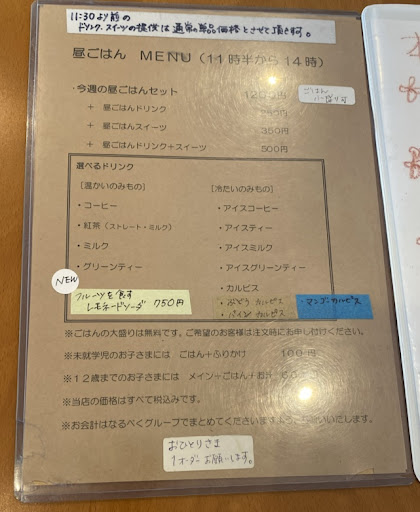 11:30より前の
ドリンク、スイーツの提供は通常の単品価格とさせて頂きます。
昼ごはん MENU (11時半から14時)
・今週の昼ごはんセット
ごはん
小盛り可
+ 昼ごはんドリンク
+ 昼ごはんスイーツ 350円
+ 昼ごはんドリンク+スイーツ 500円
選べるドリンク
[温かいのみもの] [冷たいのみもの]
・コーヒー ・アイスコーヒー
・紅茶(ストレート・ミルク) ・アイスティー
・ミルク ・アイスミルク
・グリーンティー ・アイスグリーンティー
・カルピス
NEW
フルーツを食す
レモネードソーダ 750円
・ぶどうカルピス ・マンゴーカルピス
・パインカルピス
※ごはんの大盛りは無料です。ご希望のお客様は注文時にお申し付けください。
※未就学児のお子さまには ごはん+ふりかけ 100円
※12歳までのお子さまには メイン+ごはん+お汁
※当店の価格はすべて税込みです。
※お会計はなるべくグループでまとめてくださいますようお願いいたします。
おひとりさま
1オーダーお願いします。